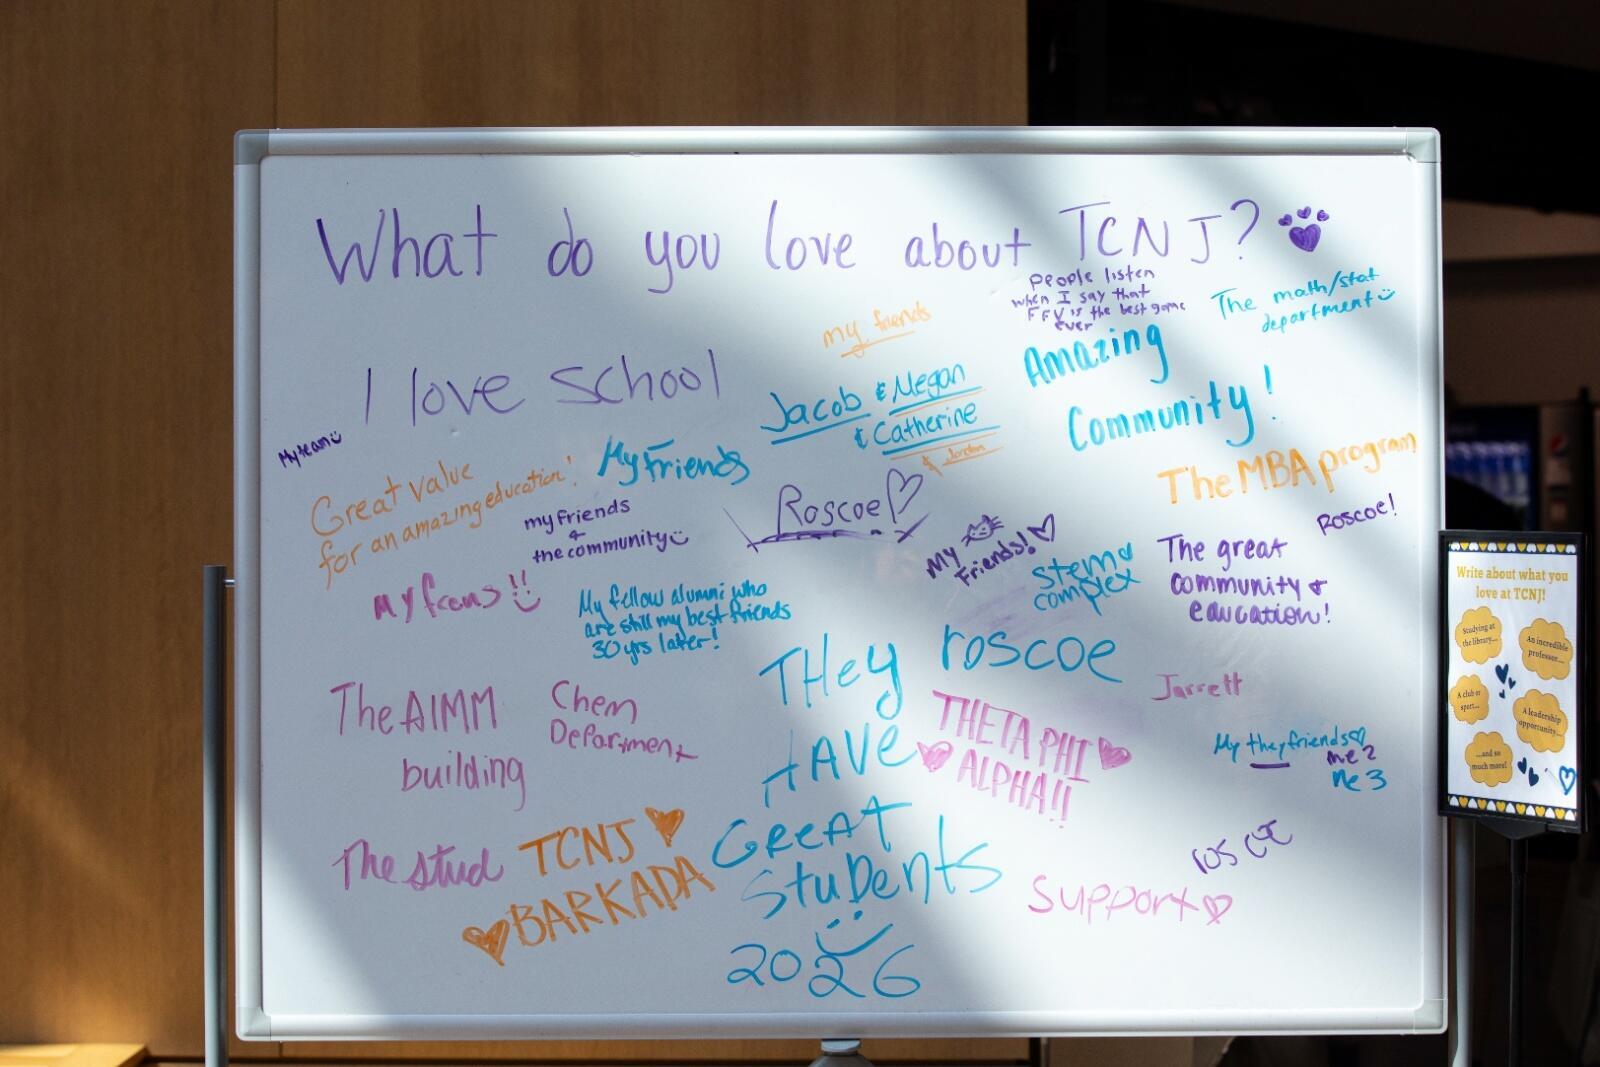 What do you love about TCNJ?
people listen
when I say that
FFV is the best game
ever
The math/stat
department
my friends
Amazing
Community!
I love school
Jacob & Megan
& Catherine
& Jordan
My team
Great value
for an amazing education!
My Friends
The MBA program
my friends
&
the community
Roscoe
Roscoe!
My
Friends!
Stem
complex
The great
community &
education!
My frens!!
My fellow alumni who
are still my best friends
30 yrs later!
roscoe
THey
HAVE
GREAT
StuDents
2026
The AIMM
building
Chem
Department
THETA PHI
ALPHA!!
Jarrett
My they friends
me 2
me 3
The stud
TCNJ
BARKADA
roscoe
Support
Write about what you
love at TCNJ!
Studying at
the library...
An incredible
professor...
A club or
sport...
A leadership
opportunity...
...and so
much more!